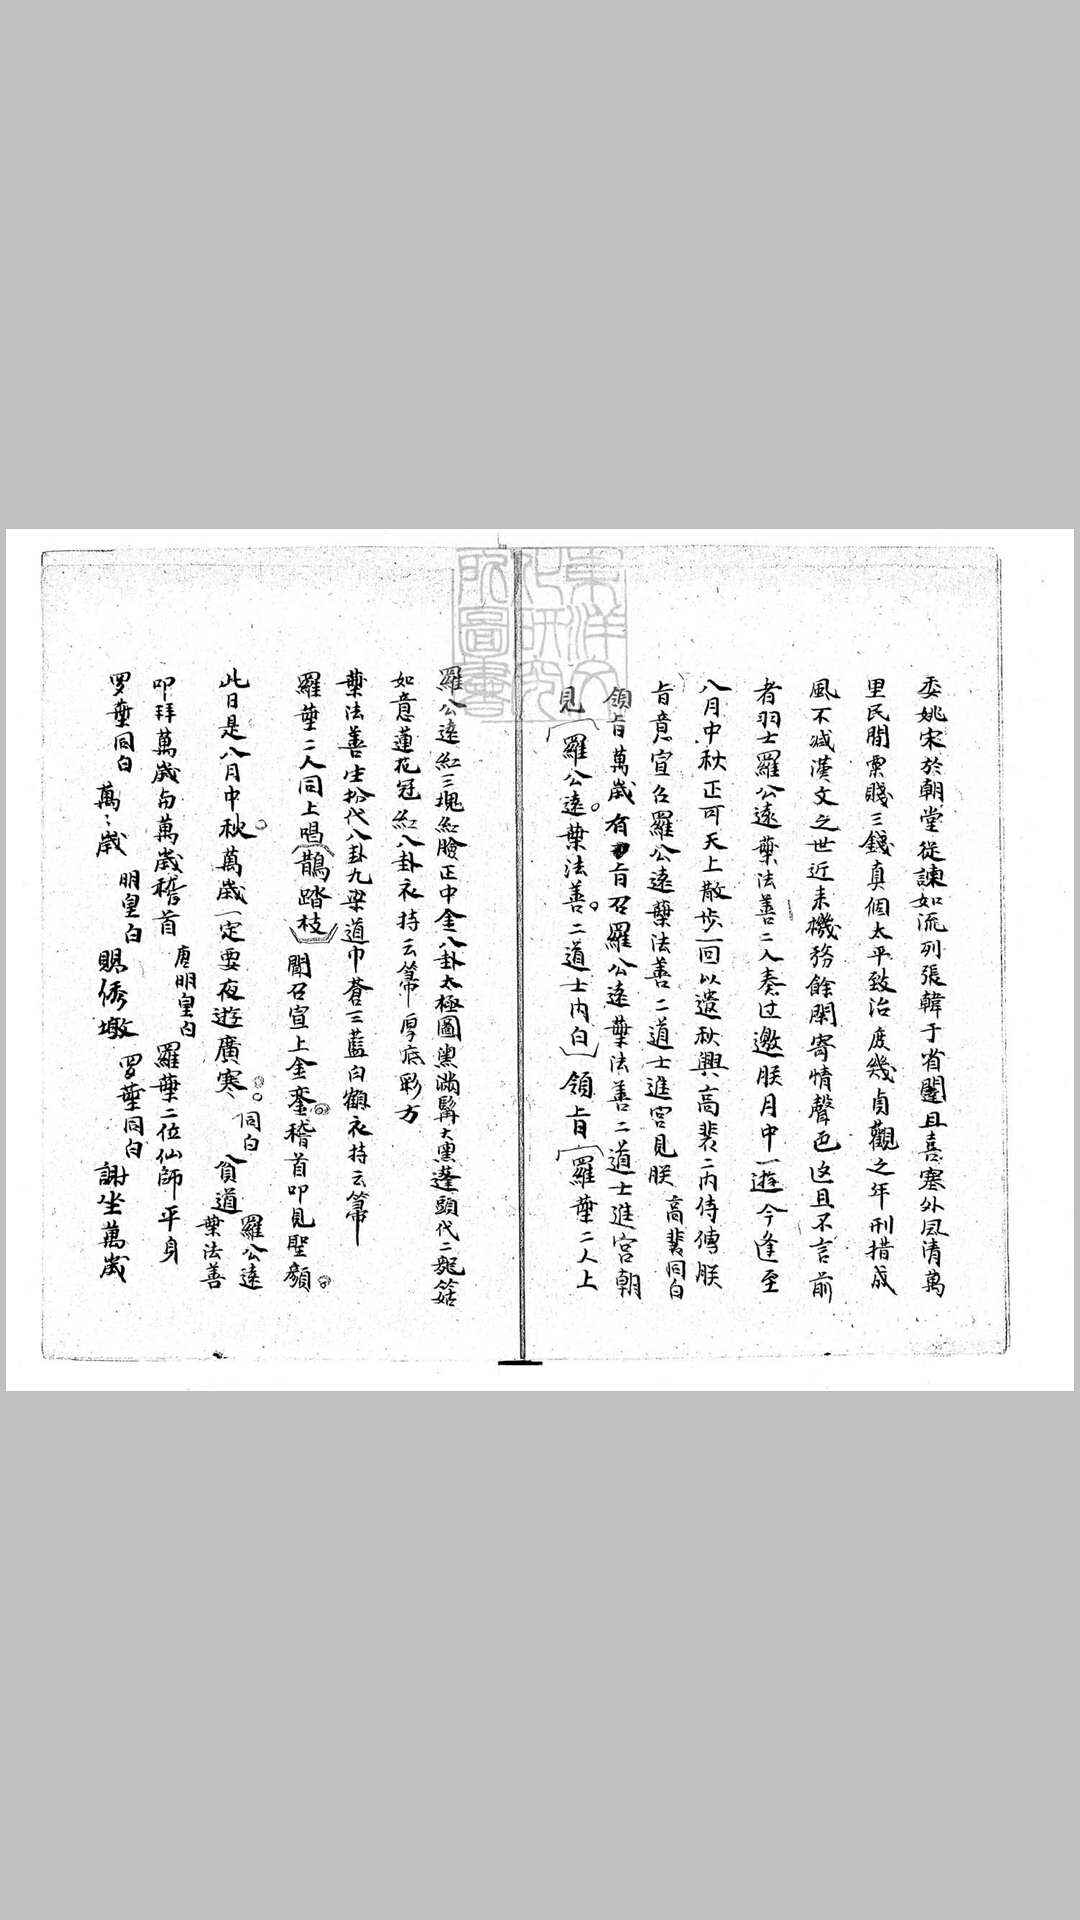 委姚宋於朝堂從諫如流列張韓于省闥且喜塞外風清萬
里民間粟賤三錢真個太平致治庶幾貞觀之年刑措成
風不減漢文之世近来機務餘閑寄情聲色这且不言前
者羽士羅公遠葉法善二人奏过邀朕月中一遊今逢至
八月中秋正可天上散步一回以遣秋興高裴二内侍傳朕
旨意宣召羅公遠葉法善二道士進宮見朕 高裴同白
領旨萬歲有旨召羅公遠葉法善二道士進宮朝
見 羅公遠葉法善二道士内白 領旨 羅葉二人上
羅公遠 紅三塊紅臉正中金八卦太極圖黑滿髯大黑蓬頭代二龍箍
如意蓮花冠 紅八卦衣持云箒 厚底彩方
葉法善生扮代八卦九梁道巾蒼三藍白鶴衣持云箒
羅葉二人同上唱 鵲踏枝 聞召宣上金鑾稽首叩見聖顔
此日是八月中秋萬歲一定要夜遊廣寒 同白 貧道 羅公遠 葉法善
叩拜萬歲与萬歲稽首 唐明皇白 羅葉二位仙師平身
罗葉同白 萬〻歲 明皇白 賜綉墩 罗葉同白 謝坐萬歲
東洋文化研究所圖書